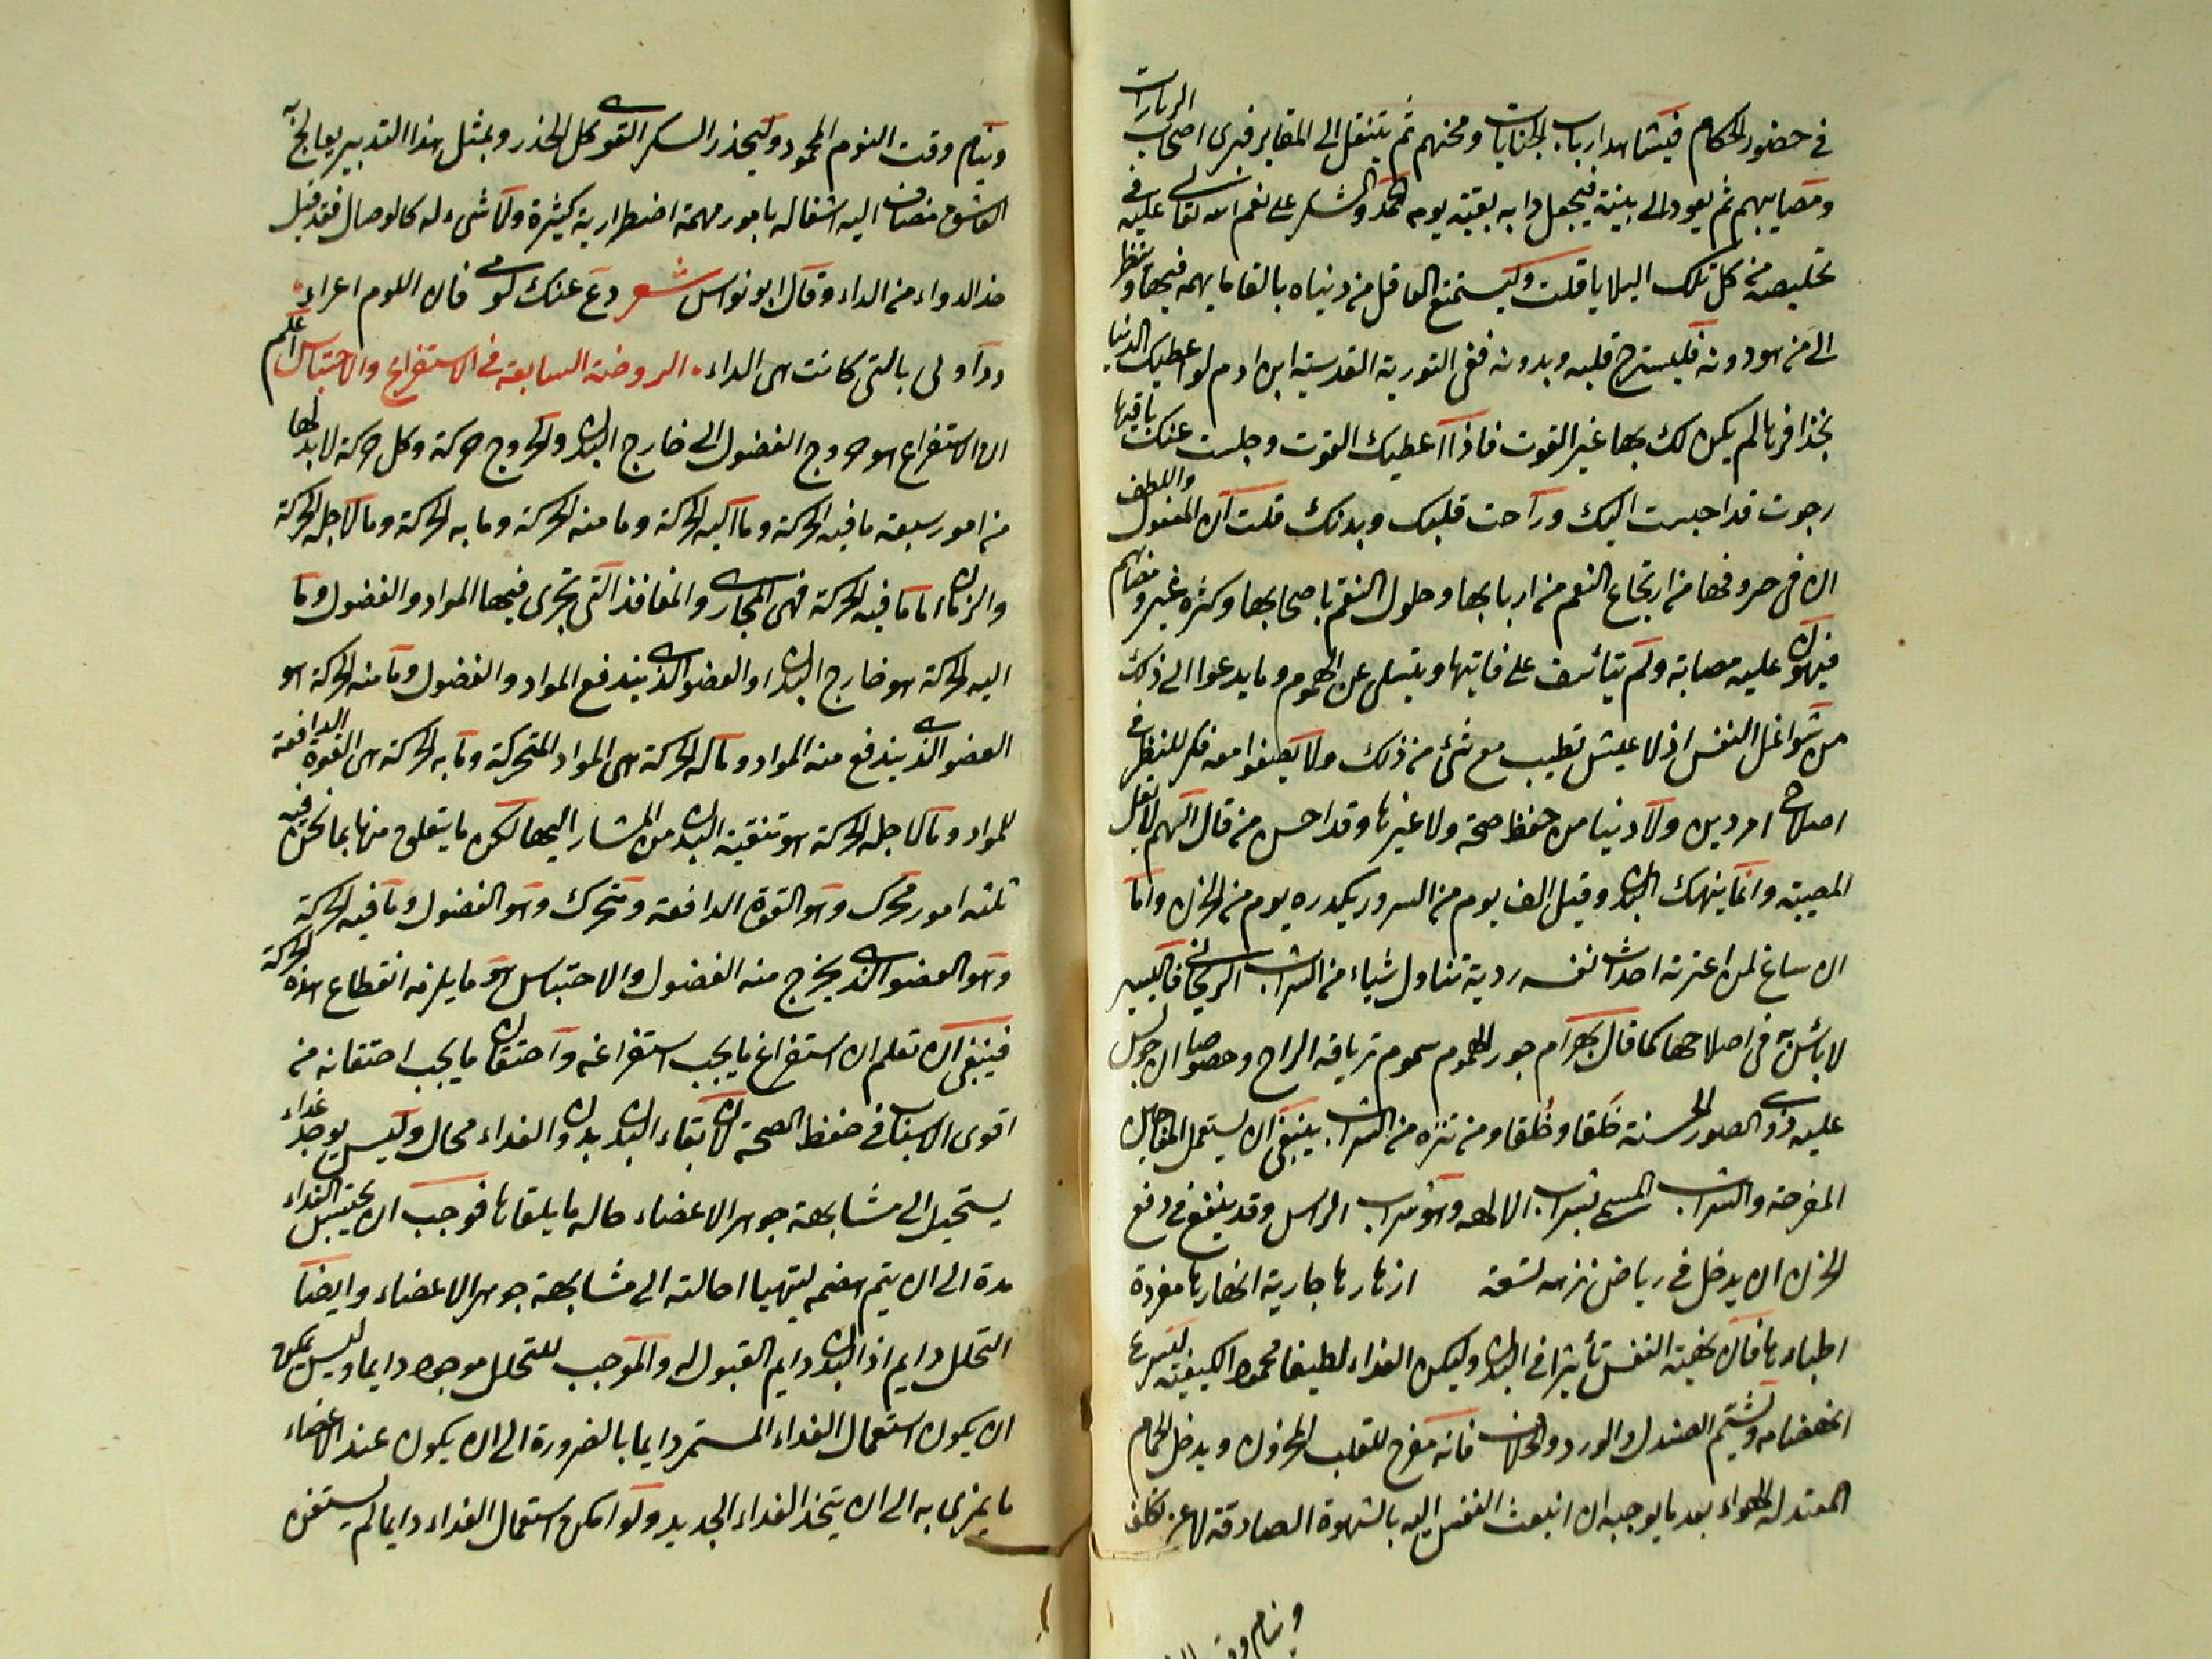 في حضور الحكام فيشاهد ارباب الجنايات ومحنهم ثم ينتقل الى المقابر فيرى اصحاب
ومصايبهم ثم يعود الى بيته فيجعل دابه بقية يومه الحمد والشكر على نعم الله تعالى عليه في
تخليصه من كل تلك البلايا قلت وليستمتع العاقل من دنياه بالقا ما يهمه فيها وينظر
الى من هو دونه فليسترح قلبه وبدنه ففي التورية القدسية ابن ادم لو اعطيتك الدنيا
بحذافرها لم يكن لك بها غير القوت فاذا اعطيك القوت وجلست عنك باقيها
رجوت قد احببت اليك وراحت قلبك وبدنك قلت ان المفعول واللطف
ان في صروفها من ارتجاع النعم من اربابها وحلول النقم باصحابها وكثرة غير
فيهون عليه مصابة ولم يتأسف على فايتها ويتسلى عن الهموم وما يدعوا الى ذلك
من شواغل النفس اذ لا عيش تطيب مع شئ من ذلك ولا يصفوا معه فكر للنظر في
اصلاح امر دين ولا دنيا من حفظ صحة ولا غيرها وقد احسن من قال الهم
المصيبة وانما ينهك البدن وقيل الف يوم من السرور يكدره يوم من الحزن واما
ان ساغ لمن اعترته احداث نفسه ردية تناول شياء من الشراب الريحاني فاليسير
لا بأس به في اصلاحها كما قال بهرام جور الهموم سموم ترياقه الراح وخصوصا ان
عليه ذوي الصور الحسنة خَلقا وخُلقا ومن تنزه من الشراب ينبغي ان يستعمل المفاجين
المفرحة والشراب المسمى بشراب الالهه وهو شراب الراسن وقد ينفع في دفع
الحزن ان يدخل في رياض نزهه ازهارها جارية انهارها مغردة
اطيارها فان لهيئة النفس تأثيرا في البدن وليكن الغذاء لطيفا محمود الكيفية ليسرع
انهضامه وليشتم الصندل والورد فانه مفرح للقلب المحزون ويدخل الحمام
المعتدلة الهواء بعد ما يوجبه ان انبعث النفس اليه بالشهوة الصادقة لا عن تكلف
وينام وقت
وينام وقت النوم المحمود وليحذر السكر القوي كل الحذر وبمثل هذا التدبير يعالج به
العاشق مضاف اليه اشغاله بامور مهمة اضطرارية كثيرة ولا شيء له كالوصال فقد قيل
خذ الدواء من الداء وقال ابو نواس شعر دع عنك لومي فان اللوم اغراء
وداوني بالتي كانت هي الداء الروضة السابعة في الاستفراغ والاحتباس اعلم
ان الاستفراغ هو خروج الفضول الى خارج البدن والخروج حركة وكل حركة لا بد لها
من امور سبعة ما فيه الحركة وما اليه الحركة وما منه الحركة وما به الحركة وما لاجله الحركة
والزمان اما ما فيه الحركة فهي المجاري والمنافذ التي يجري فيها المواد والفضول وما
اليه الحركة هو خارج البدن او العضو الذي يندفع المواد والفضول وما منه الحركة هو
العضو الذي يندفع منه المواد وما له الحركة هي المواد المتحركة وما به الحركة هي القوة الدافعة
للمواد وما لاجله الحركة هو تنقية البدن من المشار اليها لكن ما يتعلق منها بما نحن فيه
ثلثه امور محرك وهو القوة الدافعة ومتحرك وهو الفضول وما فيه الحركة
وهو العضو الذي يخرج منه الفضول والاحتباس هو ما يلزمه انقطاع هذه الحركة
فينبغي ان تعلم ان استفراغ ما يجب استفراغه واحتقان ما يجب احتقانه من
اقوى الاسباب في حفظ الصحة لان بقاء البدن بدون الغذاء محال وليس يوجد غذاء
يستحيل الى مشابهة جوهر الاعضاء حاله ما يلقاها فوجب ان يحتبس الغذاء
مدة الى ان يتم هضمه ليتهيا احالته الى مشابهة جوهر الاعضاء وايضا
التحلل دايم اذ البدن دايم القبول له والموجب للتحلل موجود دايما وليس يمكن
ان يكون استعمال الغذاء المستمر دايما بالضرورة الى ان يكون عند الاعضاء
ما يمزى به الى ان يتخذ الغذاء الجديد ولو امكن استعمال الغذاء دايما لم يستغن